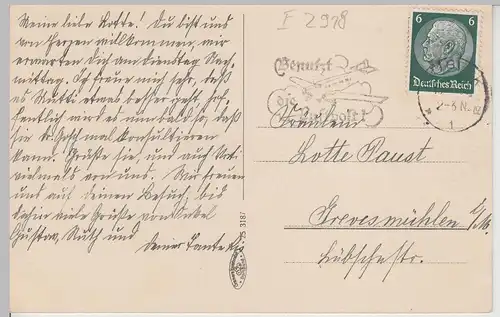 Meine liebe Lotte! Du bist uns
von Herzen willkommen, wir
erwarten Dich am Dienstag Nach-
mittag. Ich freue mich sehr, daß
es Mutti etwas besser geht, hof-
fentlich wird es nun bald so, daß
sie Dr. konsultieren
kann. Grüße sie, und auf
von uns. Wir freuen
uns auf deinen Besuch, bis
dahin viele Grüße von Onkel
Gustav, Ruth und
Deiner Tante
I 2978
6 6
Deutsches Reich
Benutzt
die
Luftpost
2-3 N.
1
Fräulein
Lotte Paust
Grevesmühlen i/M.
Lübschestr.
75 318